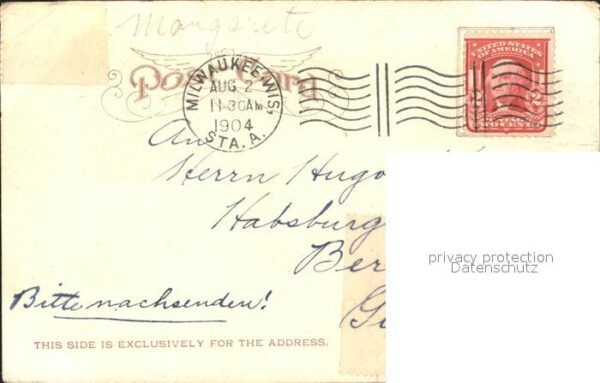 Margarete
Post Card
MILWAUKEE, WIS.
AUG 2
11-30AM
1904
STA. A.
UNITED STATES
OF AMERICA
2 2
TWO CENTS
An
Herrn Hugo
Habsburg
Ber
privacy protection
Datenschutz
Bitte nachsenden!
THIS SIDE IS EXCLUSIVELY FOR THE ADDRESS.